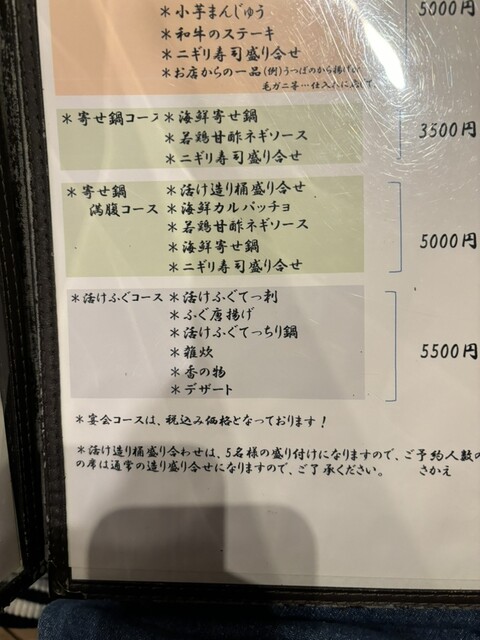 ＊小芋まんじゅう 5000円
＊和牛のステーキ
＊ニギリ寿司盛り合せ
＊お店からの一品(例)うつぼのから揚げ
毛ガニ等…仕入れに
＊寄せ鍋コース ＊海鮮寄せ鍋
＊若鶏甘酢ネギソース 3500円
＊ニギリ寿司盛り合せ
＊寄せ鍋 ＊活け造り桶盛り合せ
満腹コース ＊海鮮カルパッチョ
＊若鶏甘酢ネギソース
＊海鮮寄せ鍋 5000円
＊ニギリ寿司盛り合せ
＊活けふぐコース ＊活けふぐてっ刺
＊ふぐ唐揚げ
＊活けふぐてっちり鍋
＊雑炊 5500円
＊香の物
＊デザート
＊宴会コースは、税込み価格となっております！
＊活け造り桶盛り合わせは、5名様の盛り付けになりますので、ご予約人数の
の席は通常の造り盛り合せになりますので、ご了承ください。 さかえ